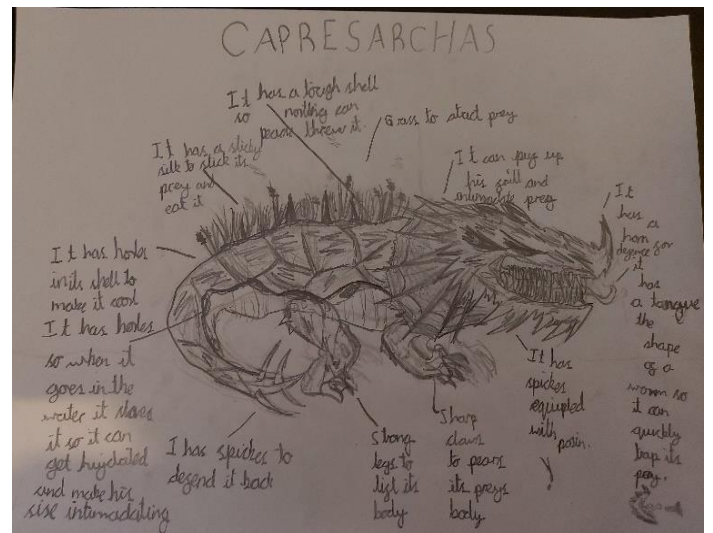 CAPRESARCHAS
It has a tough shell
so nothing can
pears threw it.
Grass to atract prey
It has a sticky
silk to stick its
prey and
eat it
It can puf up
his gill and
intimodate prey
It
has a
horn
defence for
it
It has holes
in its shell to
make it cool
It has holes
so when it
goes in the
water it stores
it so it can
get hydated
and make his
sise intimadating
has
a tongue
the
shape
of a
worm so
it can
quickly
trap its
prey.
I has spickes to
defend it back
Strong
legs to
lift its
body
Sharp
claws
to pears
its preys
body
It has
spickes
equipted
with